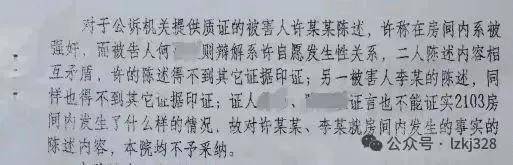 对于公诉机关提供质证的被害人许某某陈述，许称在房间内系被
强奸，而被告人何 则辩解系许自愿发生性关系，二人陈述内容相
互矛盾，许的陈述得不到其它证据印证；另一被害人李某的陈述，同
样也得不到其它证据印证；证人 、 证言也不能证实2103房
间内发生了什么样的情况，故对许某某、李某就房间内发生的事实的
陈述内容，本院均不予采纳。
公众号·lzkj328